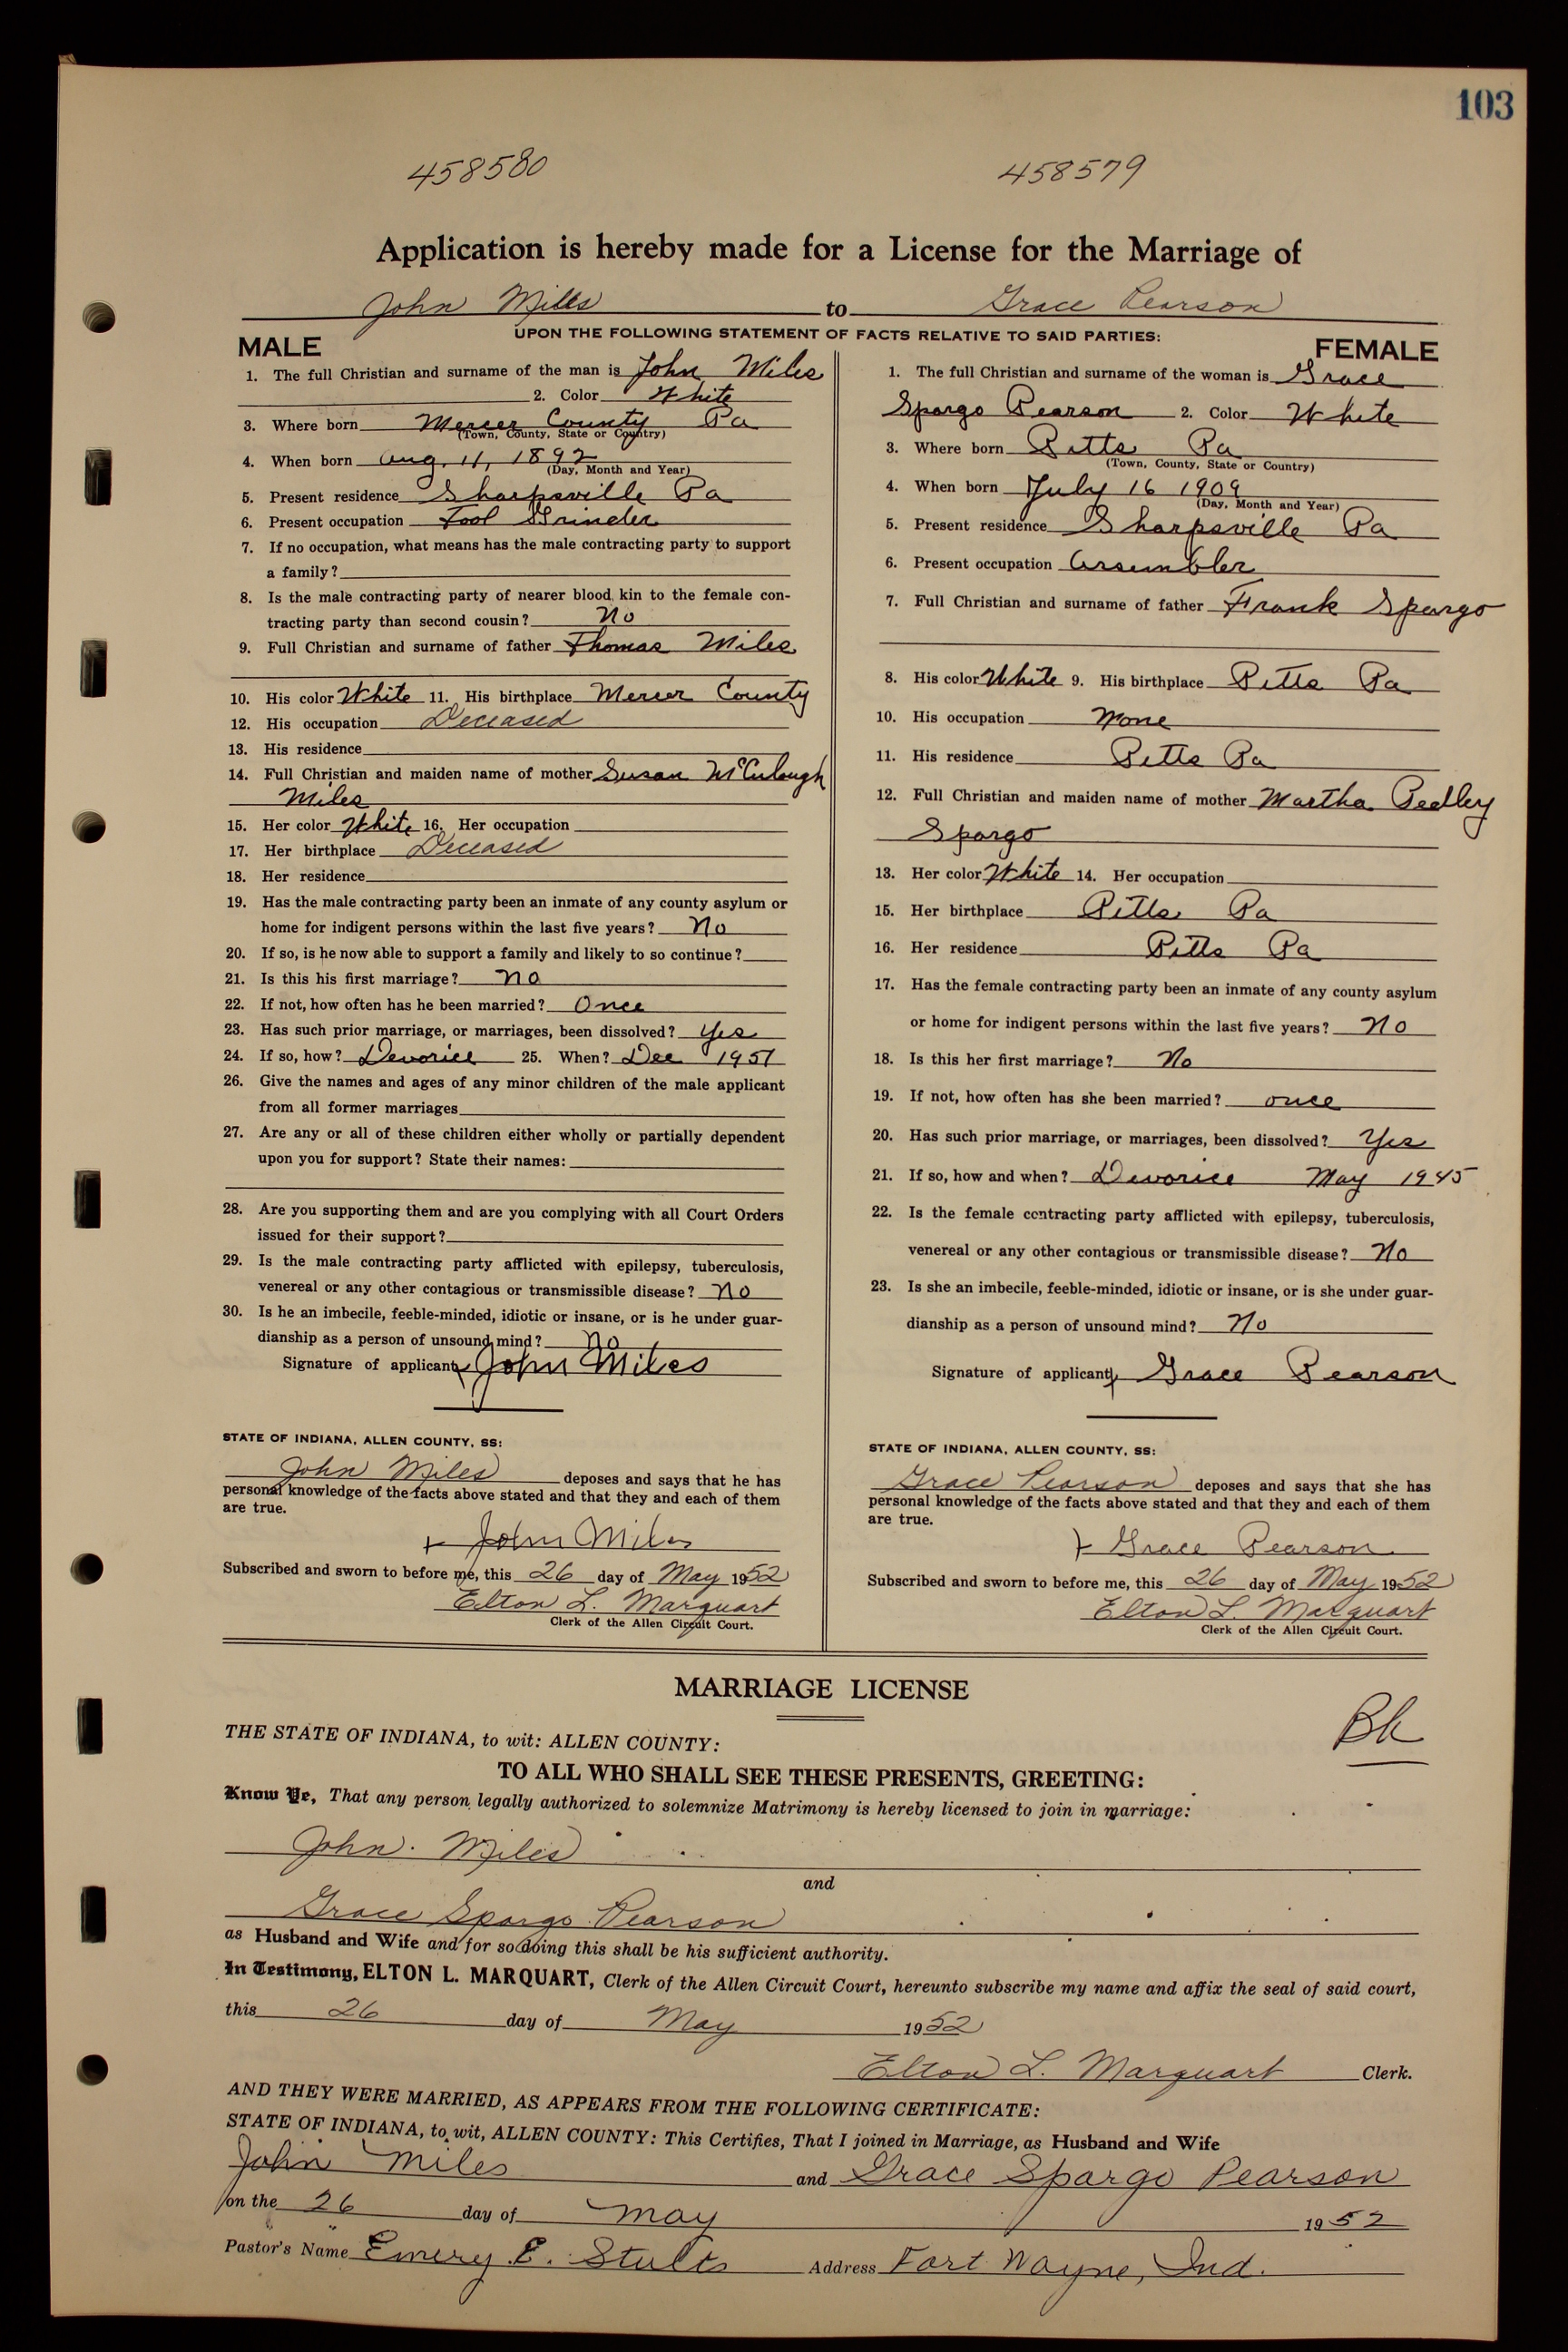 103
458580 458579
Application is hereby made for a License for the Marriage of
John Mills to Grace Pearson
UPON THE FOLLOWING STATEMENT OF FACTS RELATIVE TO SAID PARTIES:
MALE
1. The full Christian and surname of the man is John Miles
2. Color White
3. Where born Mercer County Pa
(Town, County, State or Country)
4. When born Aug. 11, 1892
(Day, Month and Year)
5. Present residence Sharpsville Pa
6. Present occupation Tool Grinder
7. If no occupation, what means has the male contracting party to support
a family?
8. Is the male contracting party of nearer blood kin to the female con-
tracting party than second cousin? No
9. Full Christian and surname of father Thomas Miles
10. His color White 11. His birthplace Mercer County
12. His occupation Deceased
13. His residence
14. Full Christian and maiden name of mother Susan McCulough
Miles
15. Her color White 16. Her occupation
17. Her birthplace Deceased
18. Her residence
19. Has the male contracting party been an inmate of any county asylum or
home for indigent persons within the last five years? No
20. If so, is he now able to support a family and likely to so continue?
21. Is this his first marriage? No
22. If not, how often has he been married? Once
23. Has such prior marriage, or marriages, been dissolved? Yes
24. If so, how? Devorice 25. When? Dec 1951
26. Give the names and ages of any minor children of the male applicant
from all former marriages
27. Are any or all of these children either wholly or partially dependent
upon you for support? State their names:
28. Are you supporting them and are you complying with all Court Orders
issued for their support?
29. Is the male contracting party afflicted with epilepsy, tuberculosis,
venereal or any other contagious or transmissible disease? No
30. Is he an imbecile, feeble-minded, idiotic or insane, or is he under guar-
dianship as a person of unsound mind? No
Signature of applicant John Miles
STATE OF INDIANA, ALLEN COUNTY, SS:
John Miles deposes and says that he has
personal knowledge of the facts above stated and that they and each of them
are true.
John Miles
Subscribed and sworn to before me, this 26 day of May 1952
Elton L. Marquart
Clerk of the Allen Circuit Court.
FEMALE
1. The full Christian and surname of the woman is Grace
Spargo Pearson 2. Color White
3. Where born Pitts Pa
(Town, County, State or Country)
4. When born July 16 1909
(Day, Month and Year)
5. Present residence Sharpsville Pa
6. Present occupation Assembler
7. Full Christian and surname of father Frank Spargo
8. His color White 9. His birthplace Pitts Pa
10. His occupation None
11. His residence Pitts Pa
12. Full Christian and maiden name of mother Martha Pedley
Spargo
13. Her color White 14. Her occupation
15. Her birthplace Pitts Pa
16. Her residence Pitts Pa
17. Has the female contracting party been an inmate of any county asylum
or home for indigent persons within the last five years? No
18. Is this her first marriage? No
19. If not, how often has she been married? once
20. Has such prior marriage, or marriages, been dissolved? Yes
21. If so, how and when? Devorice May 1945
22. Is the female contracting party afflicted with epilepsy, tuberculosis,
venereal or any other contagious or transmissible disease? No
23. Is she an imbecile, feeble-minded, idiotic or insane, or is she under guar-
dianship as a person of unsound mind? No
Signature of applicant Grace Pearson
STATE OF INDIANA, ALLEN COUNTY, SS:
Grace Pearson deposes and says that she has
personal knowledge of the facts above stated and that they and each of them
are true.
Grace Pearson
Subscribed and sworn to before me, this 26 day of May 1952
Elton L. Marquart
Clerk of the Allen Circuit Court.
MARRIAGE LICENSE
THE STATE OF INDIANA, to wit: ALLEN COUNTY:
TO ALL WHO SHALL SEE THESE PRESENTS, GREETING:
Know Ye, That any person legally authorized to solemnize Matrimony is hereby licensed to join in marriage:
John Miles
and
Grace Spargo Pearson
as Husband and Wife and for so doing this shall be his sufficient authority.
In Testimony, ELTON L. MARQUART, Clerk of the Allen Circuit Court, hereunto subscribe my name and affix the seal of said court,
this 26 day of May 1952
Elton L. Marquart Clerk.
AND THEY WERE MARRIED, AS APPEARS FROM THE FOLLOWING CERTIFICATE:
STATE OF INDIANA, to wit, ALLEN COUNTY: This Certifies, That I joined in Marriage, as Husband and Wife
John Miles and Grace Spargo Pearson
on the 26 day of May 1952
Pastor's Name Emery E. Stults Address Fort Wayne, Ind.